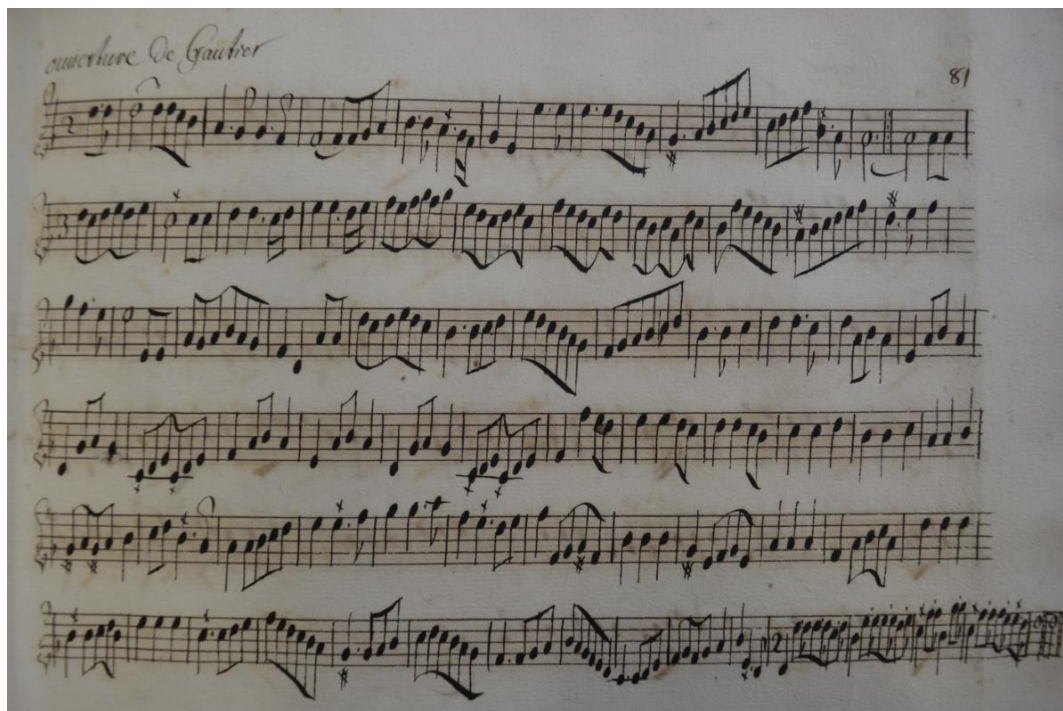 ouverture de Gautier
81